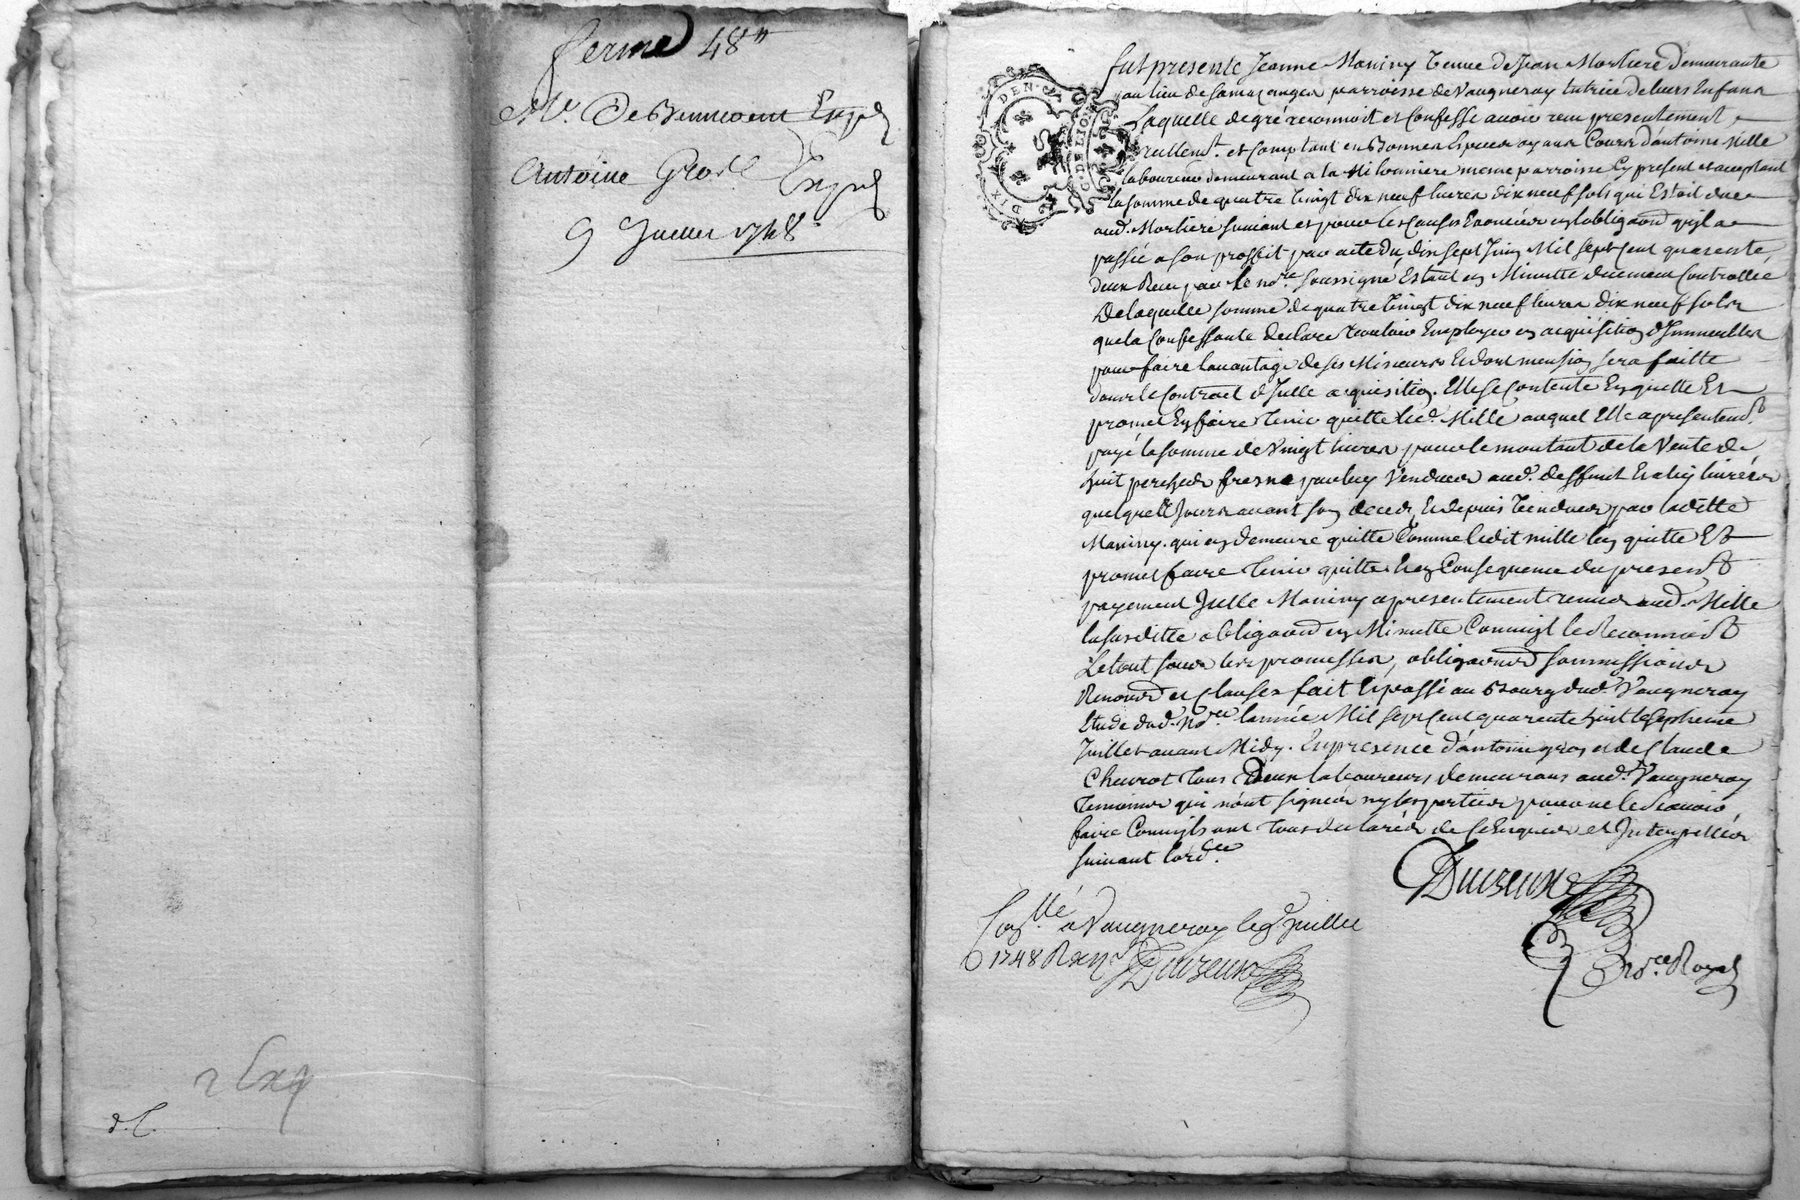 ferme 48ᵗᵗ
Mr. De Bennevent Expé
Antoine Gros Expé
9 Juillet 1748
2 Exp
d. C.
DEN. G. DE LION
DIX
fut presente Jeanne Maniny Veuve de Jean Morliere demeurante
au lieu de parroisse de Vaugneray tutrice de leurs Enfans
Laquelle de gré reconnoit et Confesse avoir reçu presentement
reellemt. et Comptant en Bonnes Especes ayans Cours d'antoine Mille
laboureur demeurant a la Milonniere meme parroisse Cy present et acceptant
la somme de quatre Vingt dix neuf livres dix neuf sols qui Estoit due
aud. Morliere suivant et pour les Causes Enoncées en lobligaõn quil a
passée a son proffit par acte du dix sept Juin Mil sept Cent quarente
deux Reçu par le nore soussigné Estant en Minutte duement Controllée
De laquelle somme de quatre Vingt dix neuf livres dix neuf sols
que la Confessante declare Vouloir Employer en acquisition d'Immeubles
pour faire lavantage de ses Mineurs Et dont mension sera faitte
dans le Contract d'Jcelle acquisition. Elle se Contente En quitte Et
promet En faire tenir quitte led. Mille auquel Elle a presentemt
payé la somme de Vingt livres pour le montant de la Vente de
huit pieds fresne par luy Vendues aud. deffunt Et a luy livrées
quelques Jours avant son deces, Et depuis Vendues par laditte
Maniny. qui en demeure quitte Comme ledit mille len quitte Et
promet faire tenir quitte Et en Consequence du present
payement Jcelle Maniny a presentement remis aud. Mille
la susditte obligaõn en Minutte Comme il le Reconnoit
Le tout sous les promesses, obligaõns soumissions
Renonõns et Clauses fait Et passé au Bourg dud. Vaugneray
Etude dud. Nore lannée Mil sept Cent quarente huit le septieme
Juillet avant Midy. En presence d'antoine gros et de Claude
Chuvrot tous Deux laboureurs demeurans aud. Vaugneray
temoins qui n'ont signés ny les parties pour ne le sçavoir
faire Comme ils ont tous declarés de Ce Enquis et Interpellés
suivant lordce.
Duvreux
Nore Royal
Conllé a Vaugneray le 9 juillet
1748 Reçu Duvreux